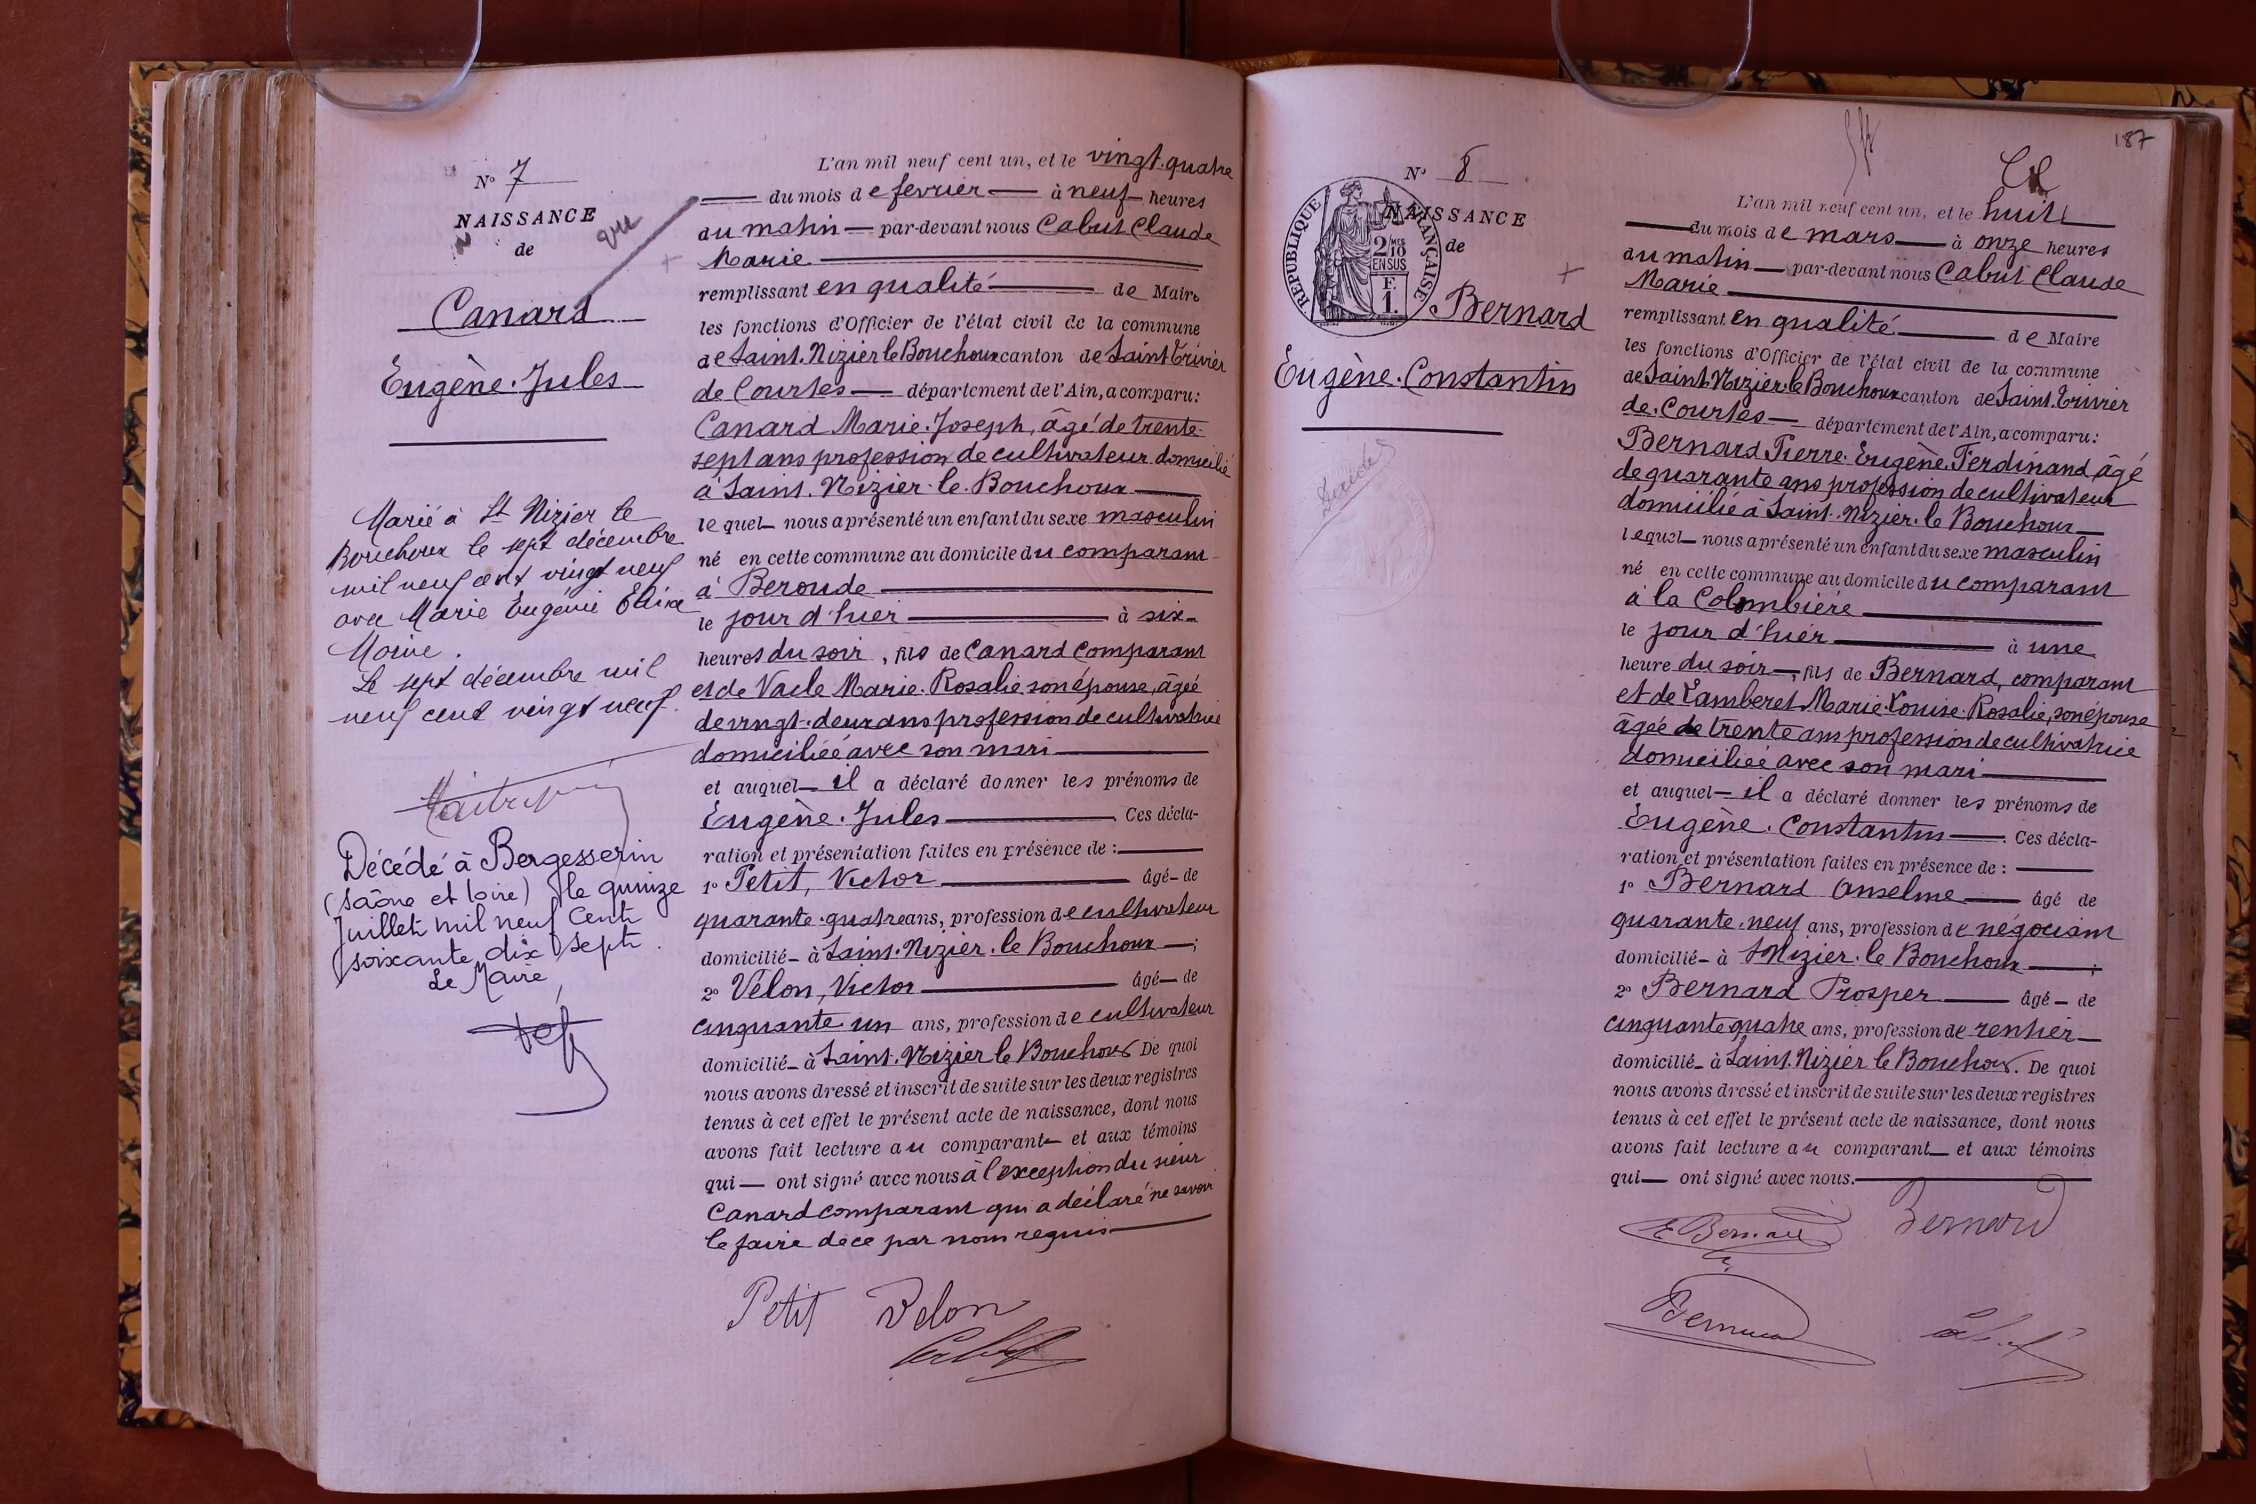 N° 7
NAISSANCE
de
vu
Canard
Eugène. Jules
Marié à St Nizier le
Bouchoux le sept décembre
mil neuf cent vingt neuf
avec Marie Eugénie Elise
Moine.
Le sept décembre mil
neuf cent vingt neuf.
Décédé à Bergesserin
(Saône et Loire) le quinze
Juillet mil neuf cent
soixante dix sept.
Le Maire
L'an mil neuf cent un, et le vingt-quatre
du mois de février à neuf heures
du matin par-devant nous Cabut Claude
Marie
remplissant en qualité de Maire
les fonctions d'Officier de l'état civil de la commune
de Saint. Nizier le Bouchoux canton de Saint Trivier
de Courtes département de l'Ain, a comparu:
Canard Marie. Joseph, âgé de trente-
sept ans profession de cultivateur domicilié
à Saint. Nizier. le. Bouchoux
lequel nous a présenté un enfant du sexe masculin
né en cette commune au domicile du comparant
à Beroude
le jour d'hier à six
heures du soir, fils de Canard comparant
et de Vacle Marie. Rosalie son épouse, âgée
de vingt. deux ans profession de cultivatrice
domiciliée avec son mari
et auquel il a déclaré donner les prénoms de
Eugène. Jules Ces décla-
ration et présentation faites en présence de :
1° Petit, Victor âgé de
quarante. quatre ans, profession de cultivateur
domicilié à Saint. Nizier. le Bouchoux ;
2° Velon, Victor âgé de
cinquante un ans, profession de cultivateur
domicilié à Saint. Nizier le Bouchoux De quoi
nous avons dressé et inscrit de suite sur les deux registres
tenus à cet effet le présent acte de naissance, dont nous
avons fait lecture au comparant et aux témoins
qui ont signé avec nous à l'exception du sieur
Canard comparant qui a déclaré ne savoir
le faire de ce par nous requis
Petit Velon
187
N° 8
NAISSANCE
de
RÉPUBLIQUE FRANÇAISE
2/10 MES
EN SUS
F.
1.
Bernard
Eugène. Constantin
Décédé
L'an mil neuf cent un, et le huit
du mois de mars à onze heures
du matin par-devant nous Cabut Claude
Marie
remplissant en qualité de Maire
les fonctions d'Officier de l'état civil de la commune
de Saint. Nizier. le Bouchoux canton de Saint. Trivier
de. Courtes département de l'Ain, a comparu:
Bernard Pierre. Eugène. Ferdinand, âgé
de quarante ans profession de cultivateur
domicilié à Saint. Nizier. le Bouchoux
lequel nous a présenté un enfant du sexe masculin
né en cette commune au domicile du comparant
à la Colombière
le jour d'hier à une
heure du soir, fils de Bernard, comparant
et de Lamberet Marie. Louise. Rosalie, son épouse
âgée de trente ans profession de cultivatrice
domiciliée avec son mari
et auquel il a déclaré donner les prénoms de
Eugène. Constantin. Ces décla-
ration et présentation faites en présence de :
1° Bernard Anselme âgé de
quarante. neuf ans, profession de négociant
domicilié à St Nizier. le Bouchoux ;
2° Bernard Prosper âgé de
cinquante quatre ans, profession de rentier
domicilié à Saint. Nizier le Bouchoux. De quoi
nous avons dressé et inscrit de suite sur les deux registres
tenus à cet effet le présent acte de naissance, dont nous
avons fait lecture au comparant et aux témoins
qui ont signé avec nous.
E Bernard Bernard
Bernard